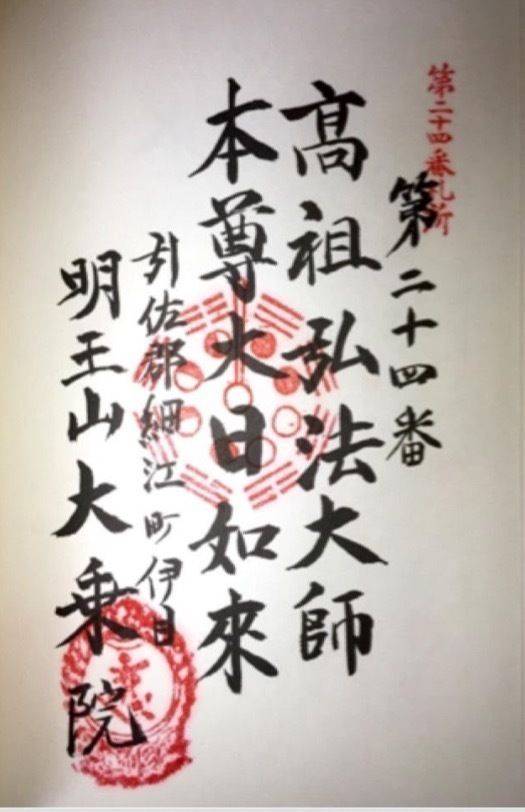 第二十四番札所
第二十四番
高祖弘法大師
本尊大日如來
引佐郡細江町伊目
明王山大乗院